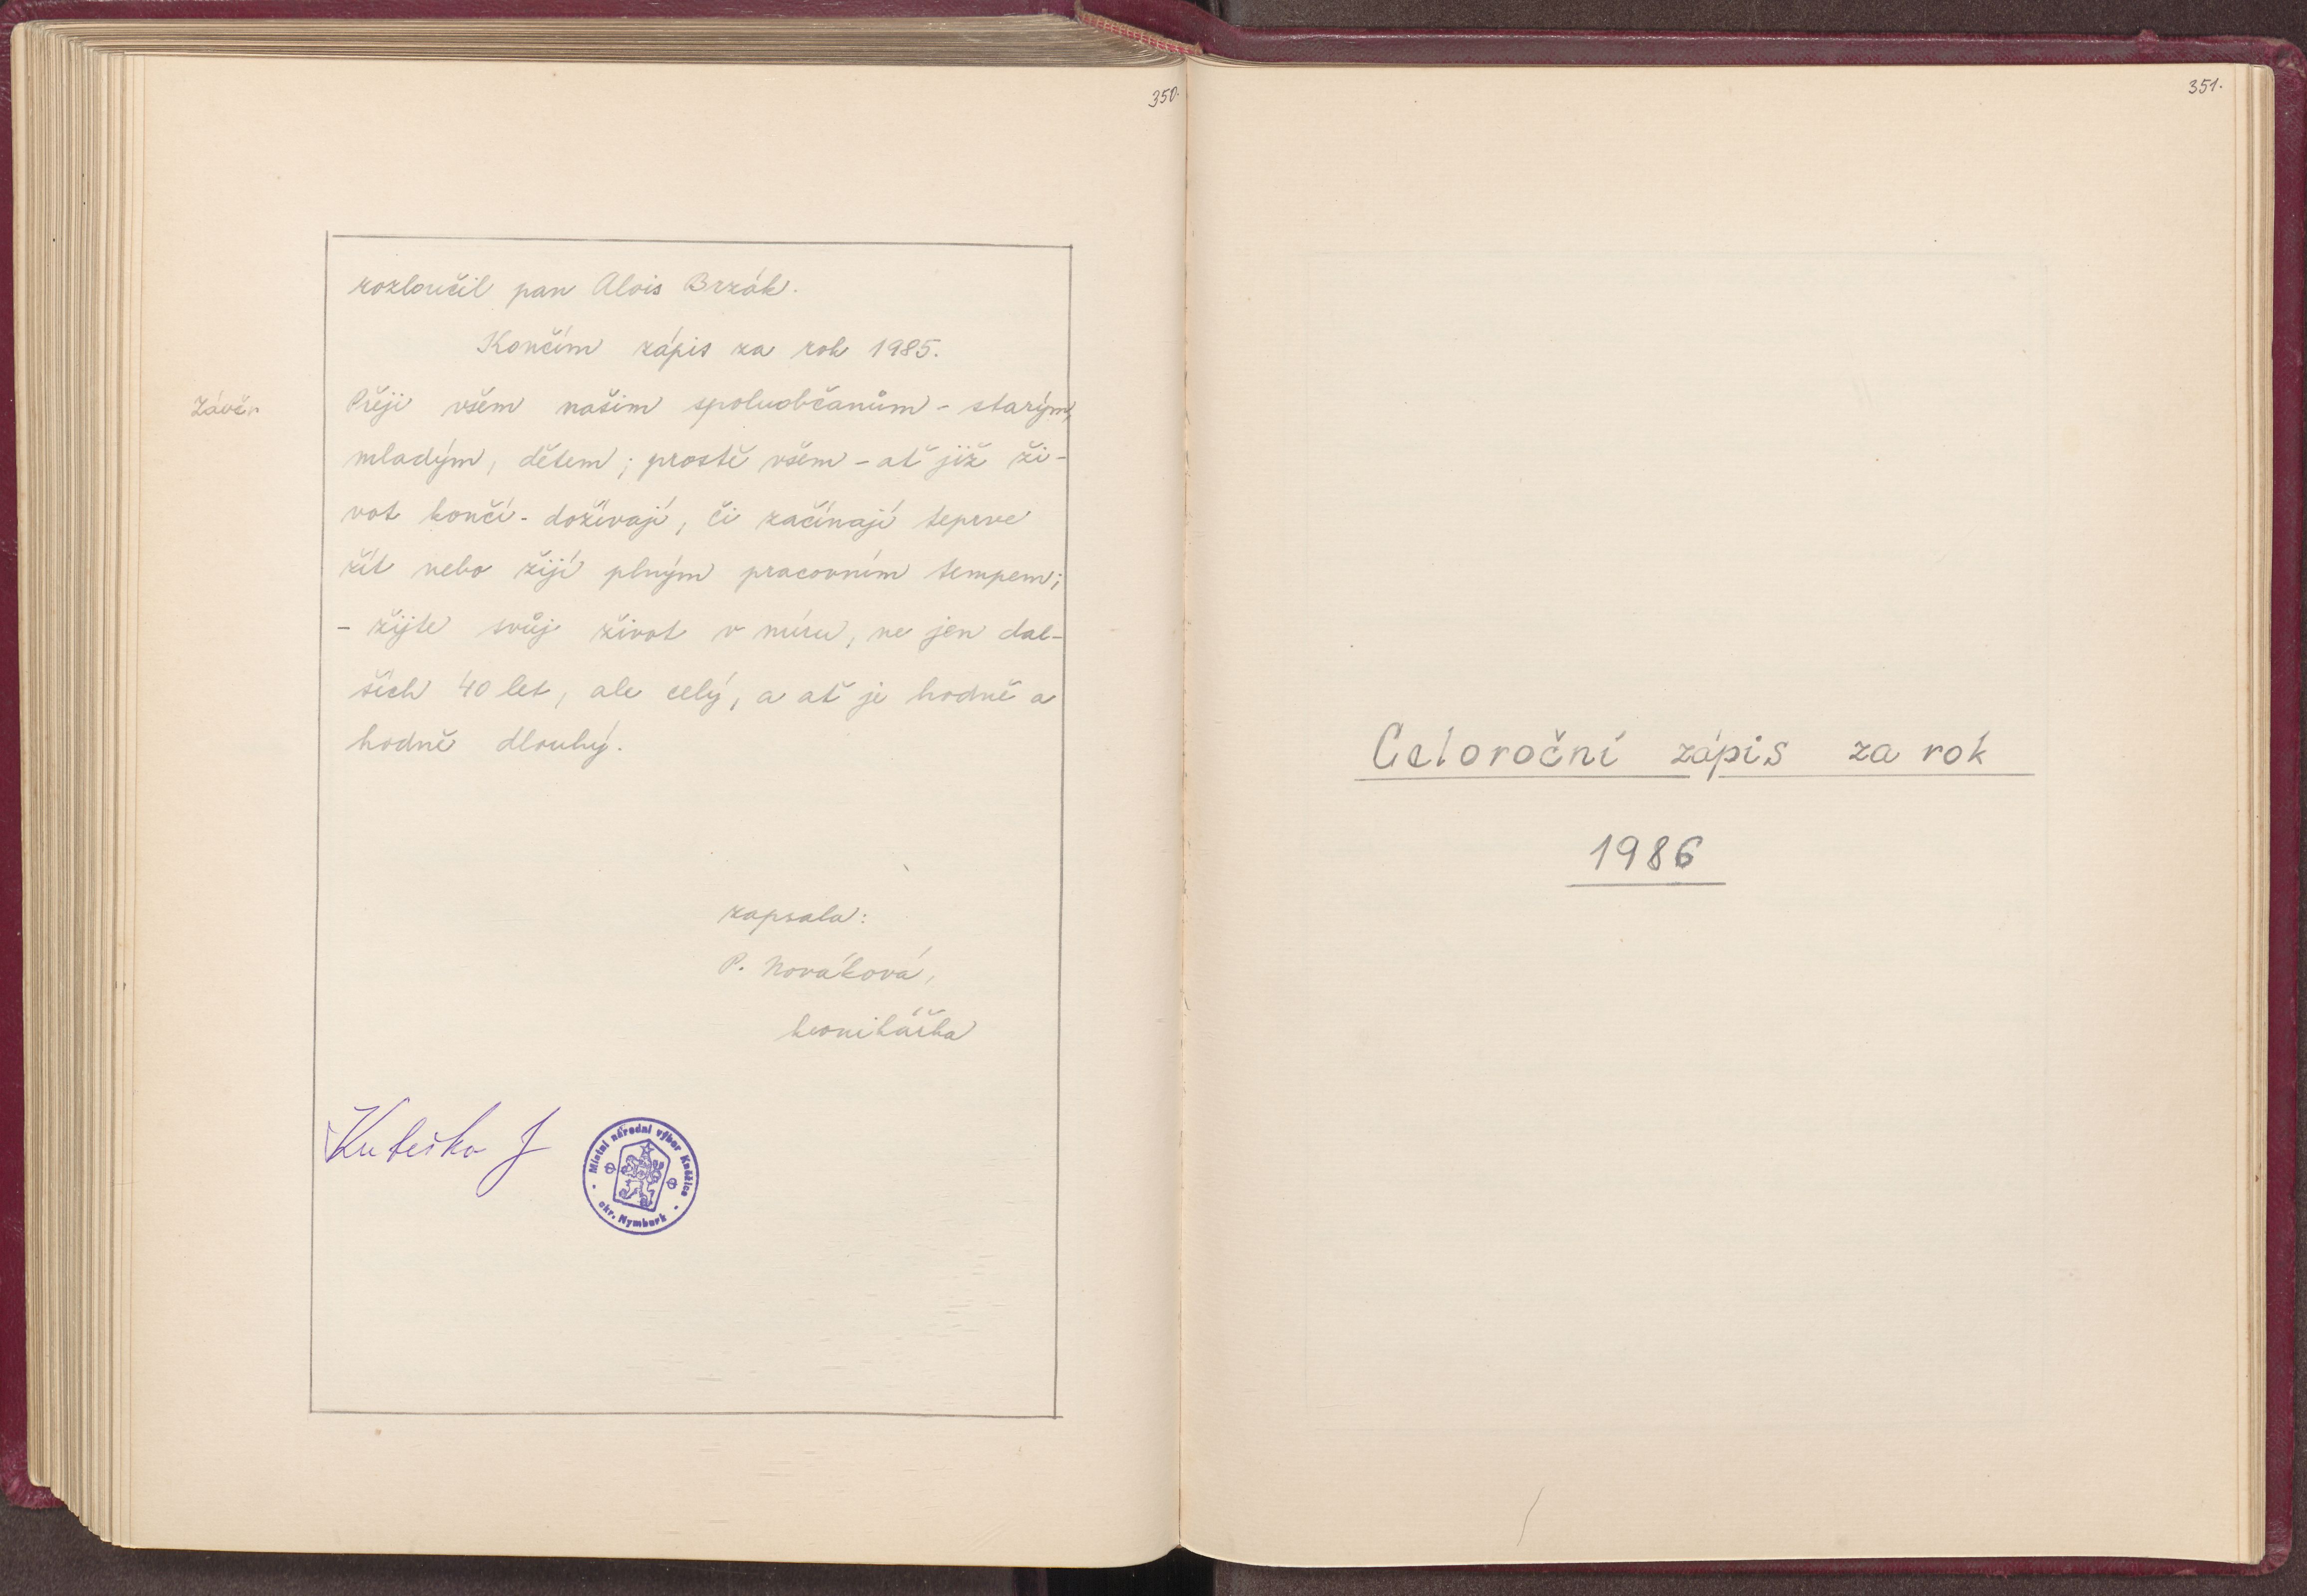 350.
rozloučil pan Alois Brzák.
Končím zápis za rok 1985.
Závěr
Přeji všem našim spoluobčanům - starým,
mladým, dětem; prostě všem - ať již ži-
vot končí - dožívají, či začínají teprve
žít nebo žijí plným pracovním tempem;
- žijte svůj život v míru, ne jen dal-
ších 40 let, ale celý, a ať je hodně a
hodně dlouhý.
zapsala:
P. Nováková,
kronikářka
J
Místní národní výbor Kněžice
okr. Nymburk
351.
Celoroční zápis za rok
1986